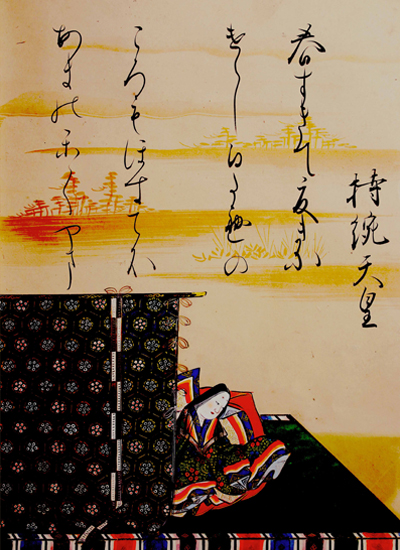 持統天皇
春すきて夏きに
けらし白たへの
ころもほすてふ
あまのかくやま